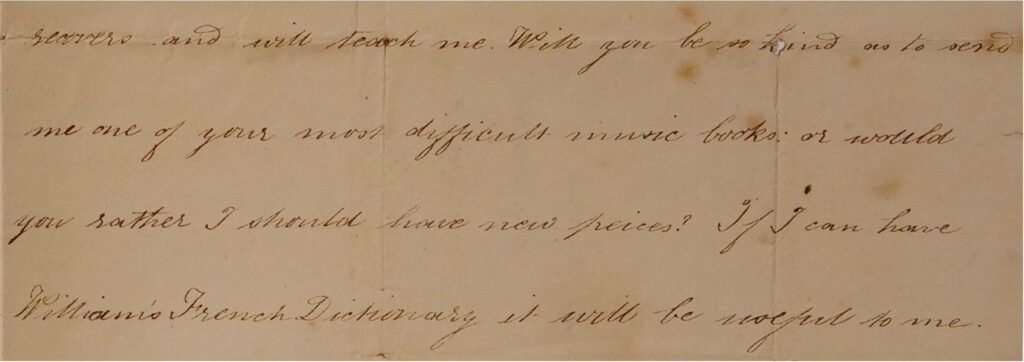 recovers and will teach me. Will you be so kind as to send
me one of your most difficult music books: or would
you rather I should have new peices? If I can have
William's French Dictionary it will be useful to me.